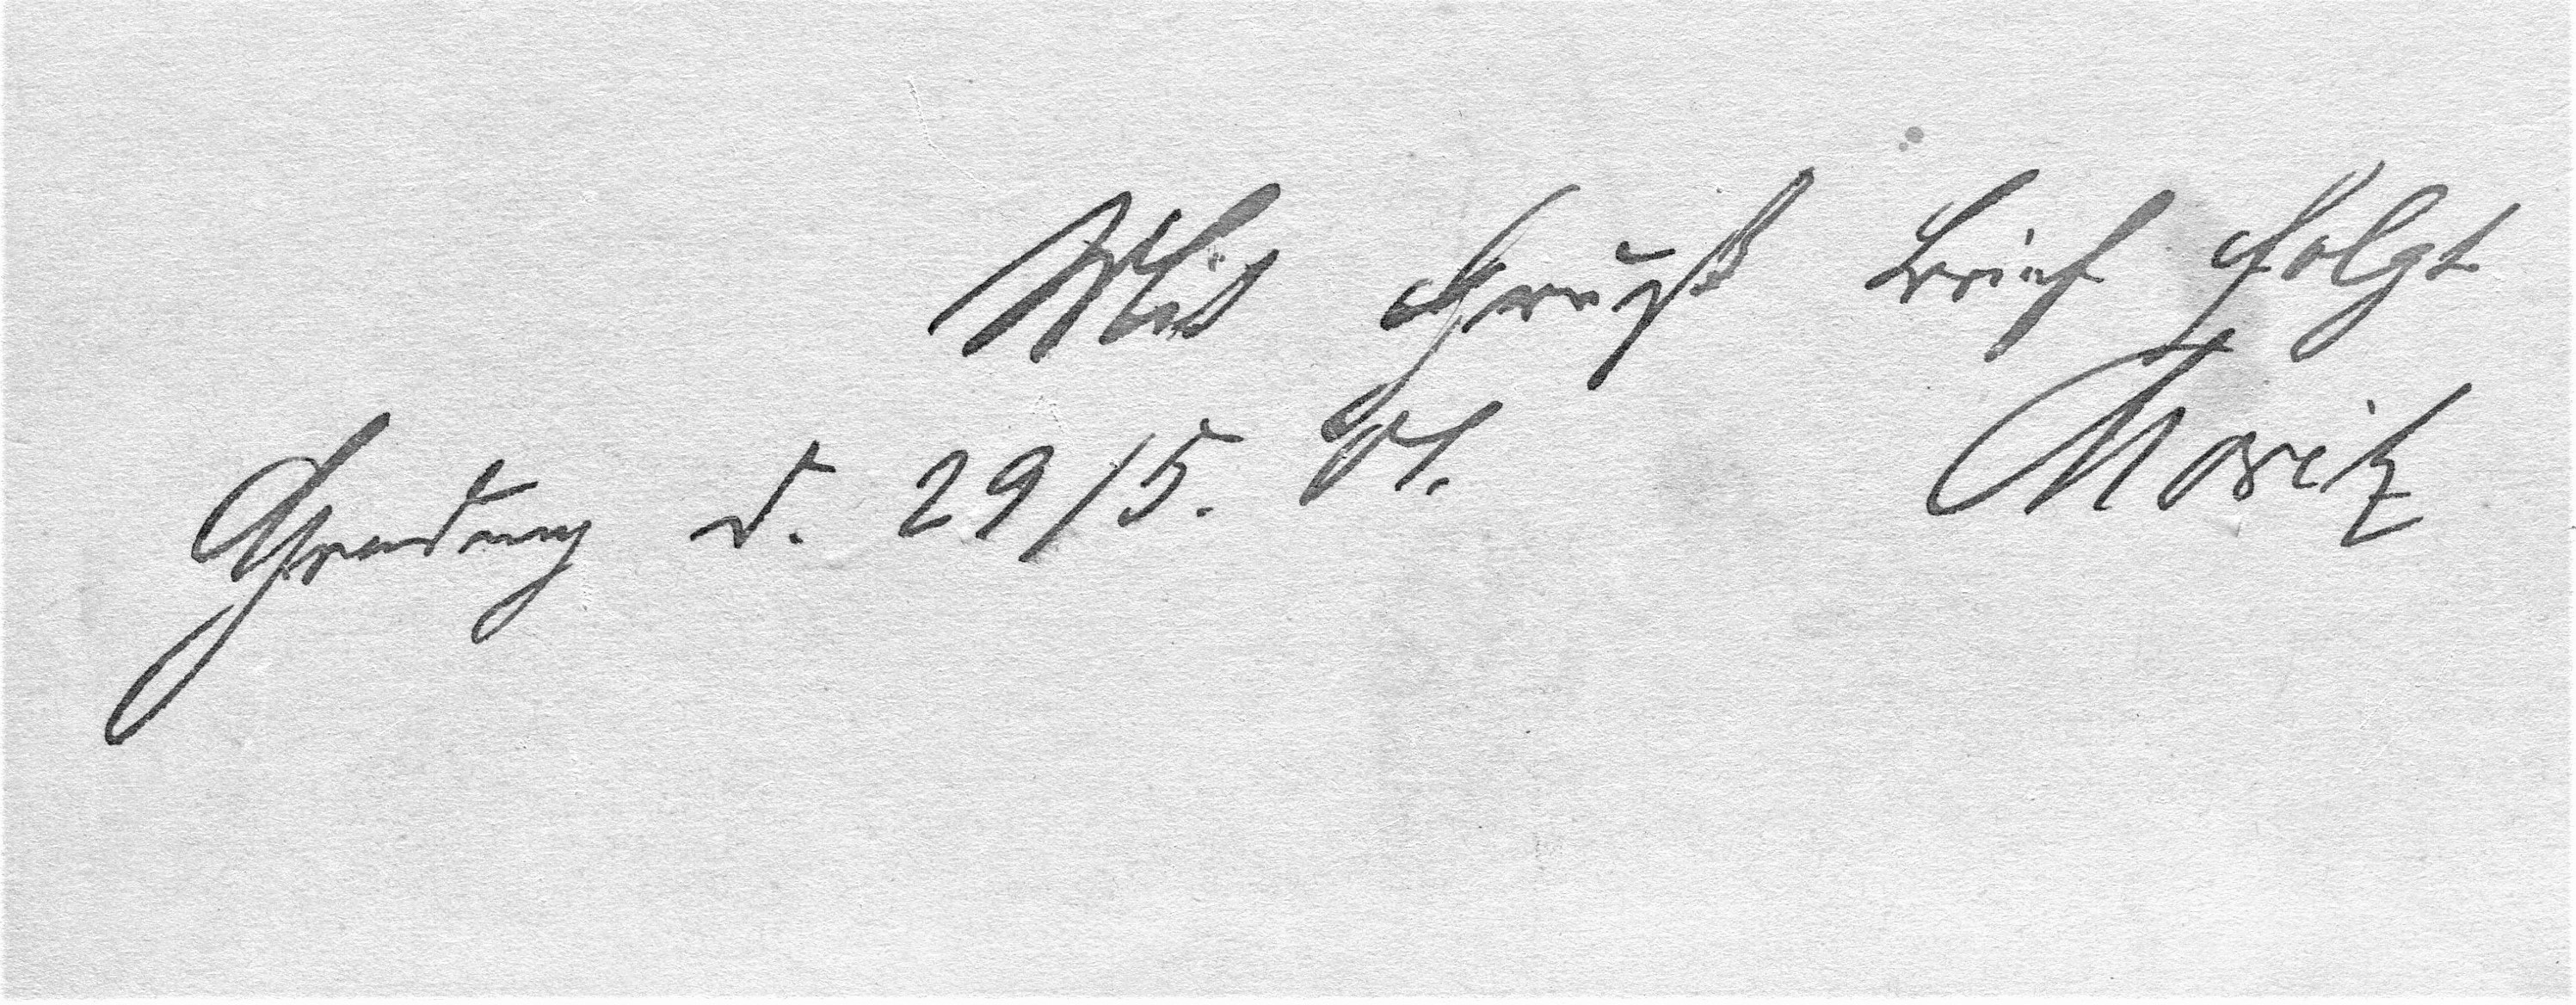 Mit Gruß Brief folgt
Moritz
d. 29/5. 01.